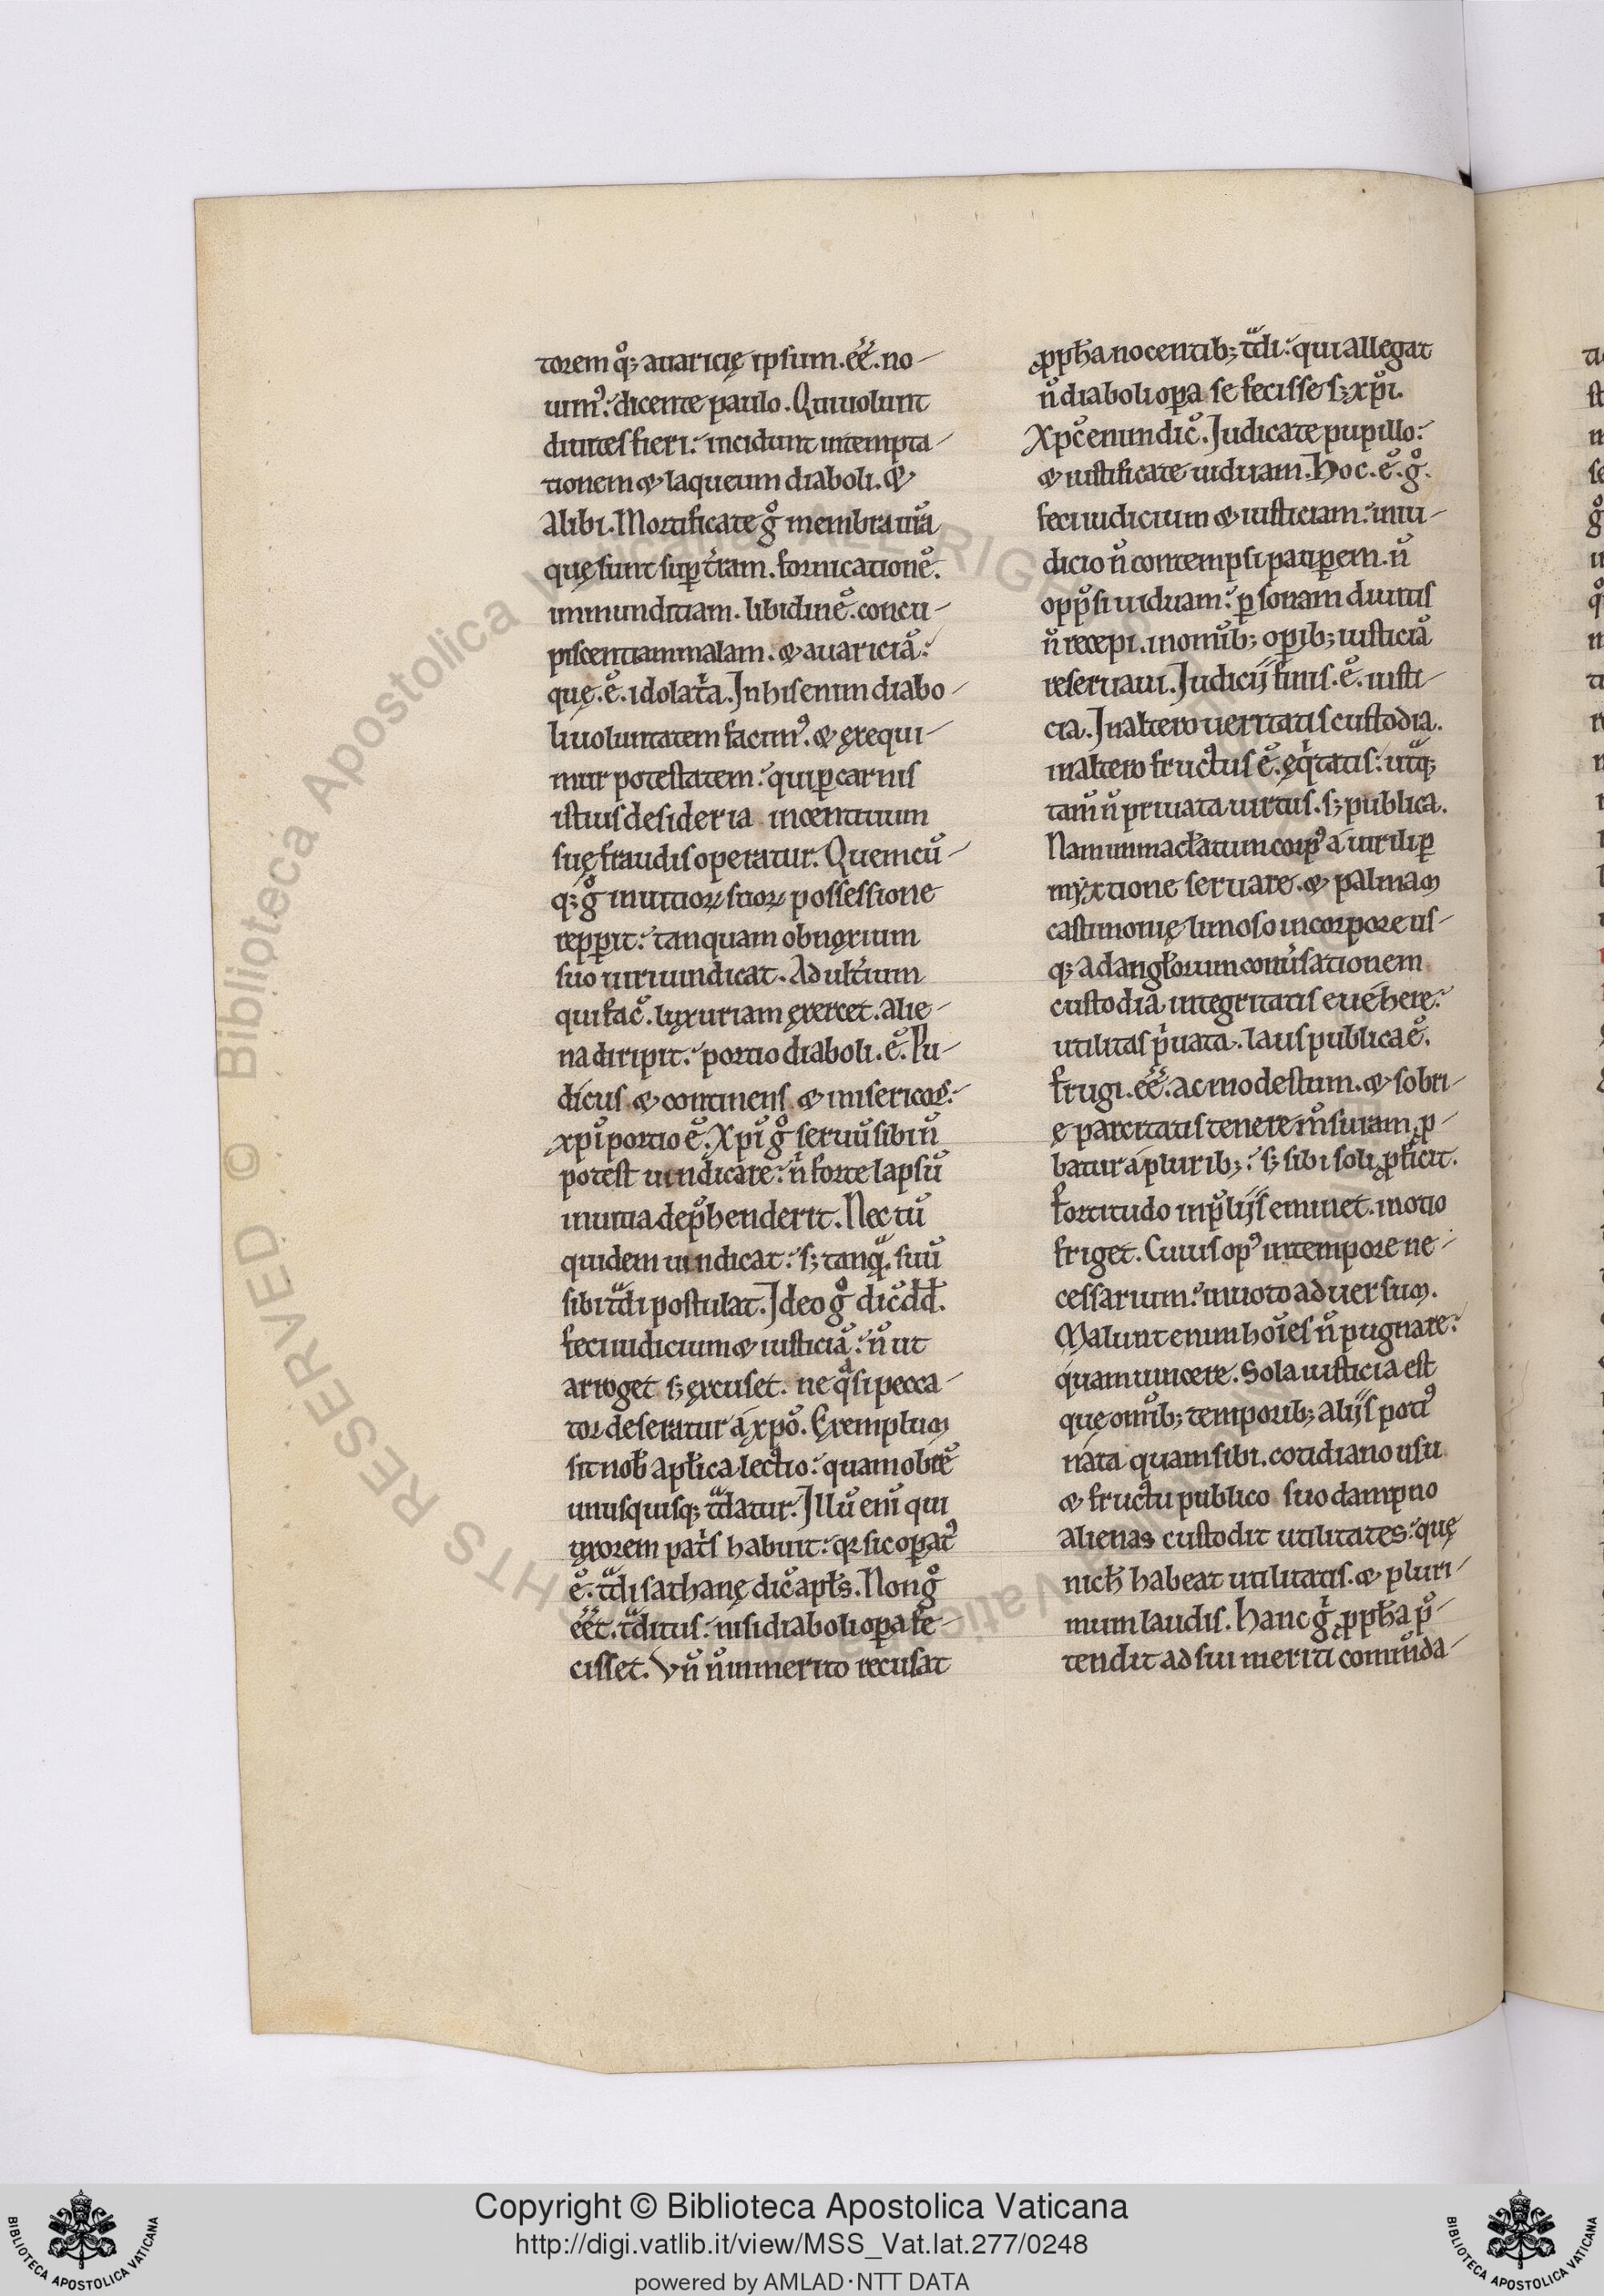 torem qͦꝫ auaricię ipsum .ee᷃. no-
uimꝰ: dicente paulo. Qui uolunt
diuites fieri: incidunt in tempta-
tionem ⁊ laqueum diaboli. ⁊
alibi. Mortificate gͦ membra ur̄a
quę sunt suꝑ t̄ram. fornicationē.
immunditiam. libidinē. concu-
piscentiam malam. ⁊ auariciā:
quę .ē. idolat̄a. In his enim diabo-
li uoluntatem facimꝰ. ⁊ ęxequi-
mur potestatem: qui ꝑ carnis
istius desideria incentiuum
suę fraudis operatur. Quemcū-
qꝫ gͦ in uitioꝝ suoꝝ possessione
repꝑit: tanquam obnęxium
suo iuri uindicat. Adult̄ium
qui fac̄. luxuriam ęxercet. alie-
na diripit: portio diaboli .ē. Pu-
dicus ⁊ continens ⁊ misericors:
xp̄i portio ē. Xp̄i gͦ seruū sibi n̄
potest uindicare: nͥ forte lapsū
in uitia dep̄henderit. Nec tū
quidem uindicat: sꝫ tanqᷓ. suū
sibi tᷓdi postulat. Ideo gͦ dic̄ dd̄.
feci iudicium ⁊ iusticiā: n̄ ut
arroget sꝫ ęxcuset. ne qᷓsi pecca-
tor deseratur a xp̄o. Exemplum
sit nob̄ apl̄ica lectio: quam ob rē
unusquisqꝫ tᷓdatur. Illū enī qui
uxorem pat̄s habuit: qꝛ sic oꝑatꝰ
ē. tᷓdi sathanę dic̄ apl̄s. Non gͦ
eēt. tᷓditus: nisi diaboli oꝑa fe-
cisset. Vn̄ n̄ inmerito recusat
ꝓph̄a nocentibꝫ tᷓdi: qui allegat
n̄ diaboli oꝑa se fecisse sꝫ xp̄i.
Xpc̄ enim dic̄. Judicate pupillo:
⁊ iustificate uiduam. Hoc .ē. gͦ.
feci iudicium ⁊ iusticiam: in iu-
dicio n̄ contempsi pauꝑem. n̄
opp̄si uiduam: ꝑsonam diuitis
n̄ recepi. in om̄ibꝫ oꝑibꝫ iusticiā
reseruaui. Judicij finis .ē. iusti-
cia. In altero ueritatis custodia.
in altero fructus ē. ęqͥtatis: utᷓqꝫ
tam̄ n̄ priuata uirtus. sꝫ publica.
Nam inmacl̄atum corpꝰ a uirili ꝑ
myxtione seruare. ⁊ palmam
castimonię limoso in corpore us-
qꝫ ad angl̄orum conūsationem
custodia integritatis euehere:
utilitas pͥuata. laus publica ē.
frugi .ee᷃. ac modestum. ⁊ sobri-
ę parcitatis tenere m̄suram ꝓ-
batur a pluribꝫ: sꝫ sibi soli ꝓficit.
fortitudo in p̄lijs eminet. in otio
friget. Cuius opꝰ in tempore ne-
cessarium: in uoto aduersum.
Malunt enim hoīes n̄ pugnare:
quam uincere. Sola iusticia est
quę om̄ibꝫ temporibꝫ alijs potiꝰ
nata quam sibi. cotidiano usu
⁊ fructu publico suo dampno
alienas custodit utilitates: quę
nich̄ habeat utilitatis. ⁊ pluri-
mum laudis. Hanc gͥ ꝓph̄a p̄-
tendit ad sui meriti com̄nda-
© Biblioteca Apostolica Vaticana ALL RIGHTS RESERVED
Copyright © Biblioteca Apostolica Vaticana
http://digi.vatlib.it/view/MSS_Vat.lat.277/0248
powered by AMLAD·NTT DATA
BIBLIOTECA APOSTOLICA VATICANA
BIBLIOTECA APOSTOLICA VATICANA